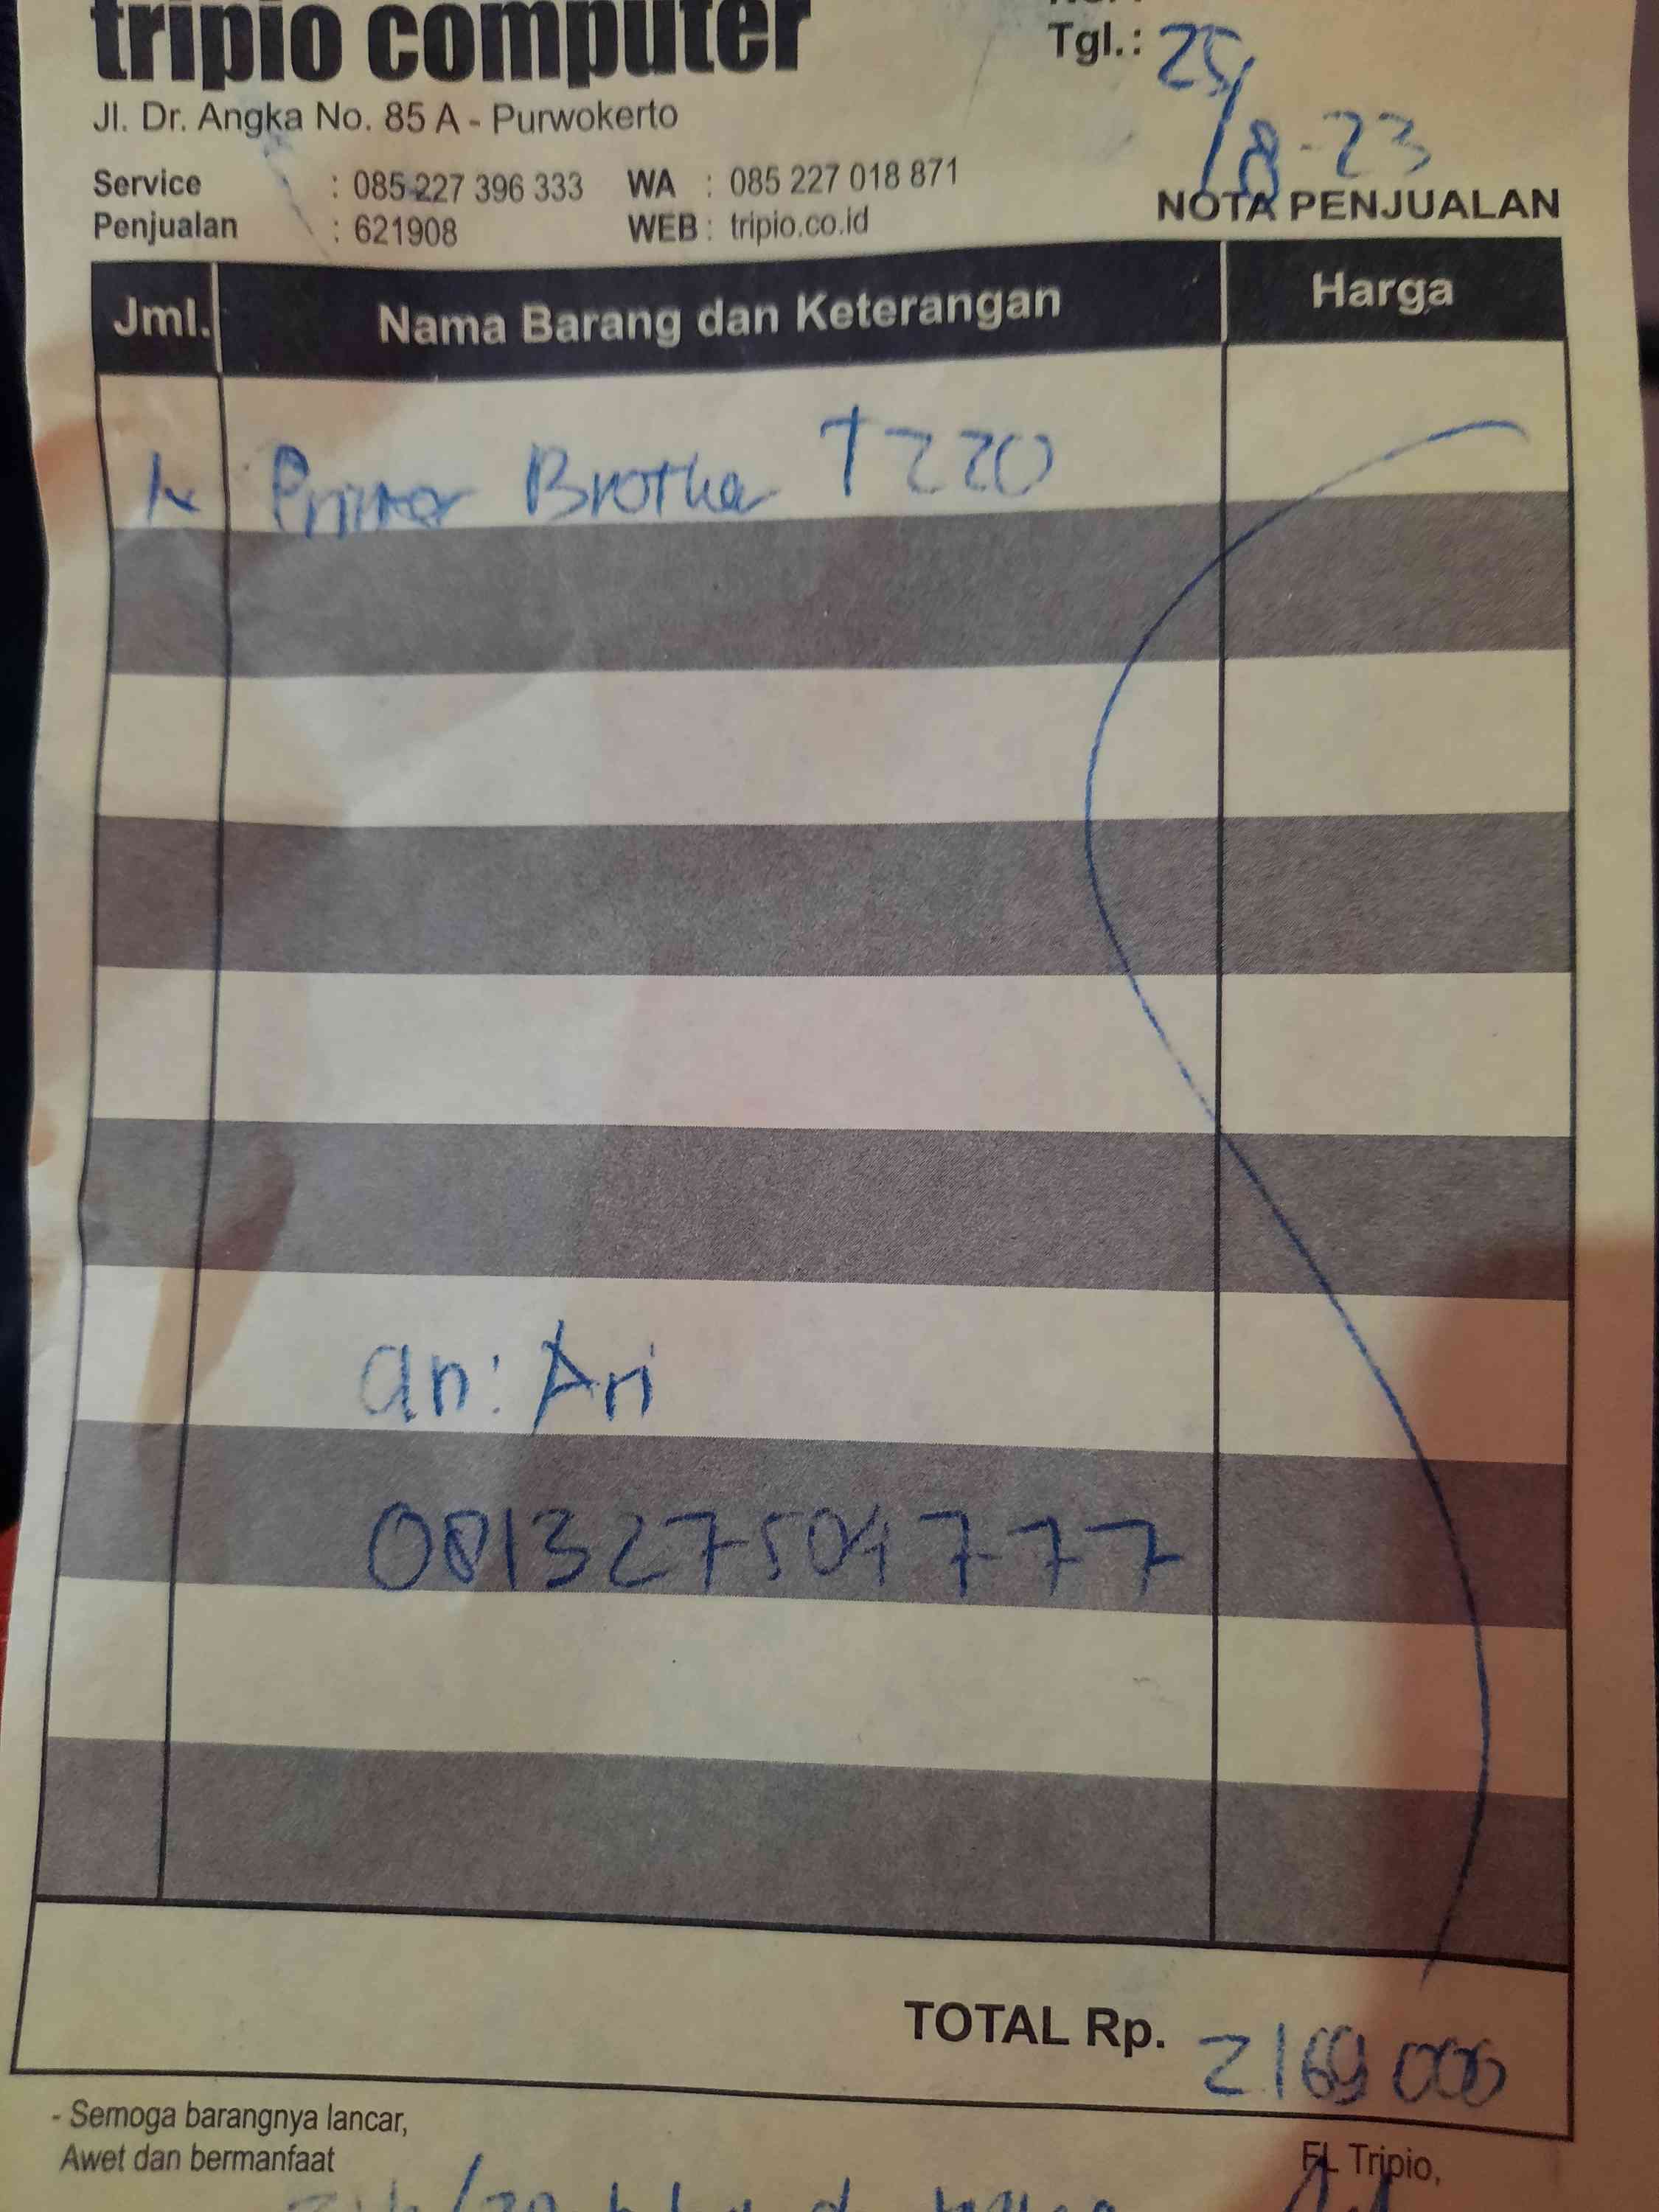 tripio computer
Tgl.: 25/8-23
Jl. Dr. Angka No. 85 A - Purwokerto
Service : 085 227 396 333 WA : 085 227 018 871
Penjualan : 621908 WEB : tripio.co.id
NOTA PENJUALAN
Jml. Nama Barang dan Keterangan Harga
1x Printer Brother T220
an: Ari
081327504777
TOTAL Rp. 2169000
- Semoga barangnya lancar,
Awet dan bermanfaat
Tripio,